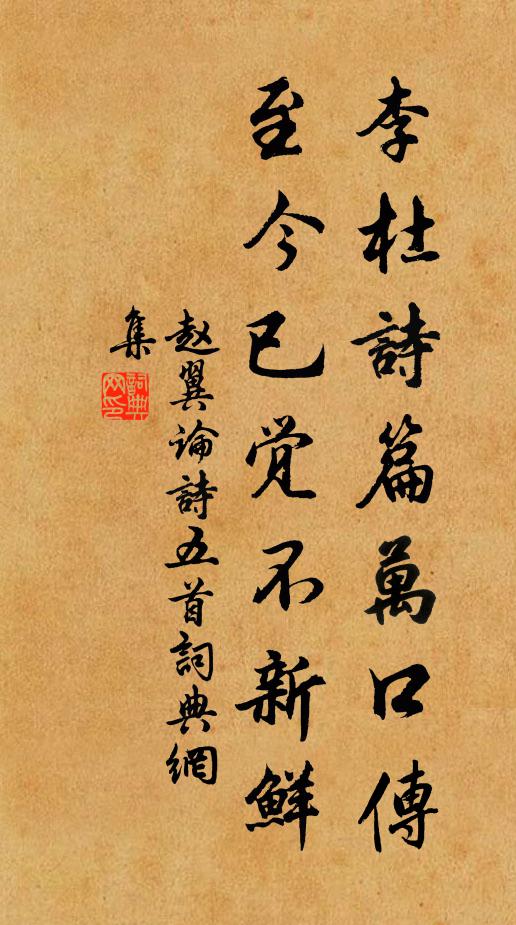 李杜詩篇萬口傳
至今已觉不新鮮
赵翼论詩五首詞典網
集
詞典
网印